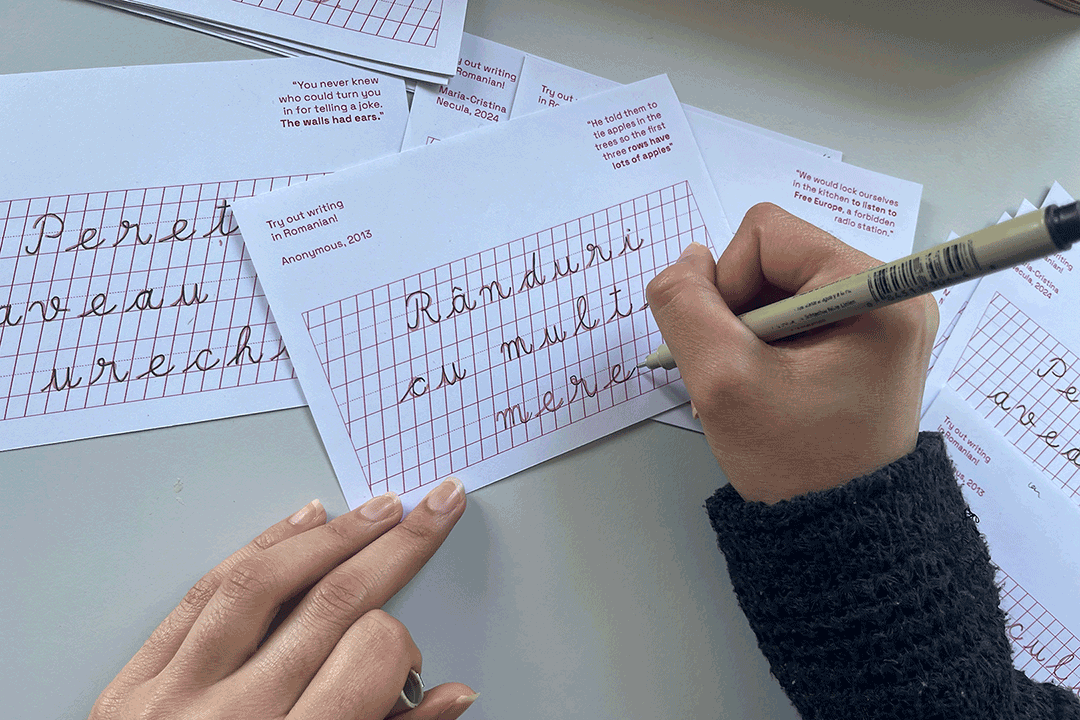 "You never knew
who could turn you
in for telling a joke.
The walls had ears."
aveau
out writing
Romanian!
Maria-Cristina
Necula, 2024
Try out
in
"He told them to
tie apples in the
trees so the first
three rows have
lots of apples"
Try out writing
in Romanian!
Anonymous, 2013
Rânduri
cu mult
mere
"We would lock ourselves
in the kitchen to listen to
Free Europe, a forbidden
radio station."
Maria-Cristina
Necula, 2024
Pe
Try out writing
in Romanian!
2013